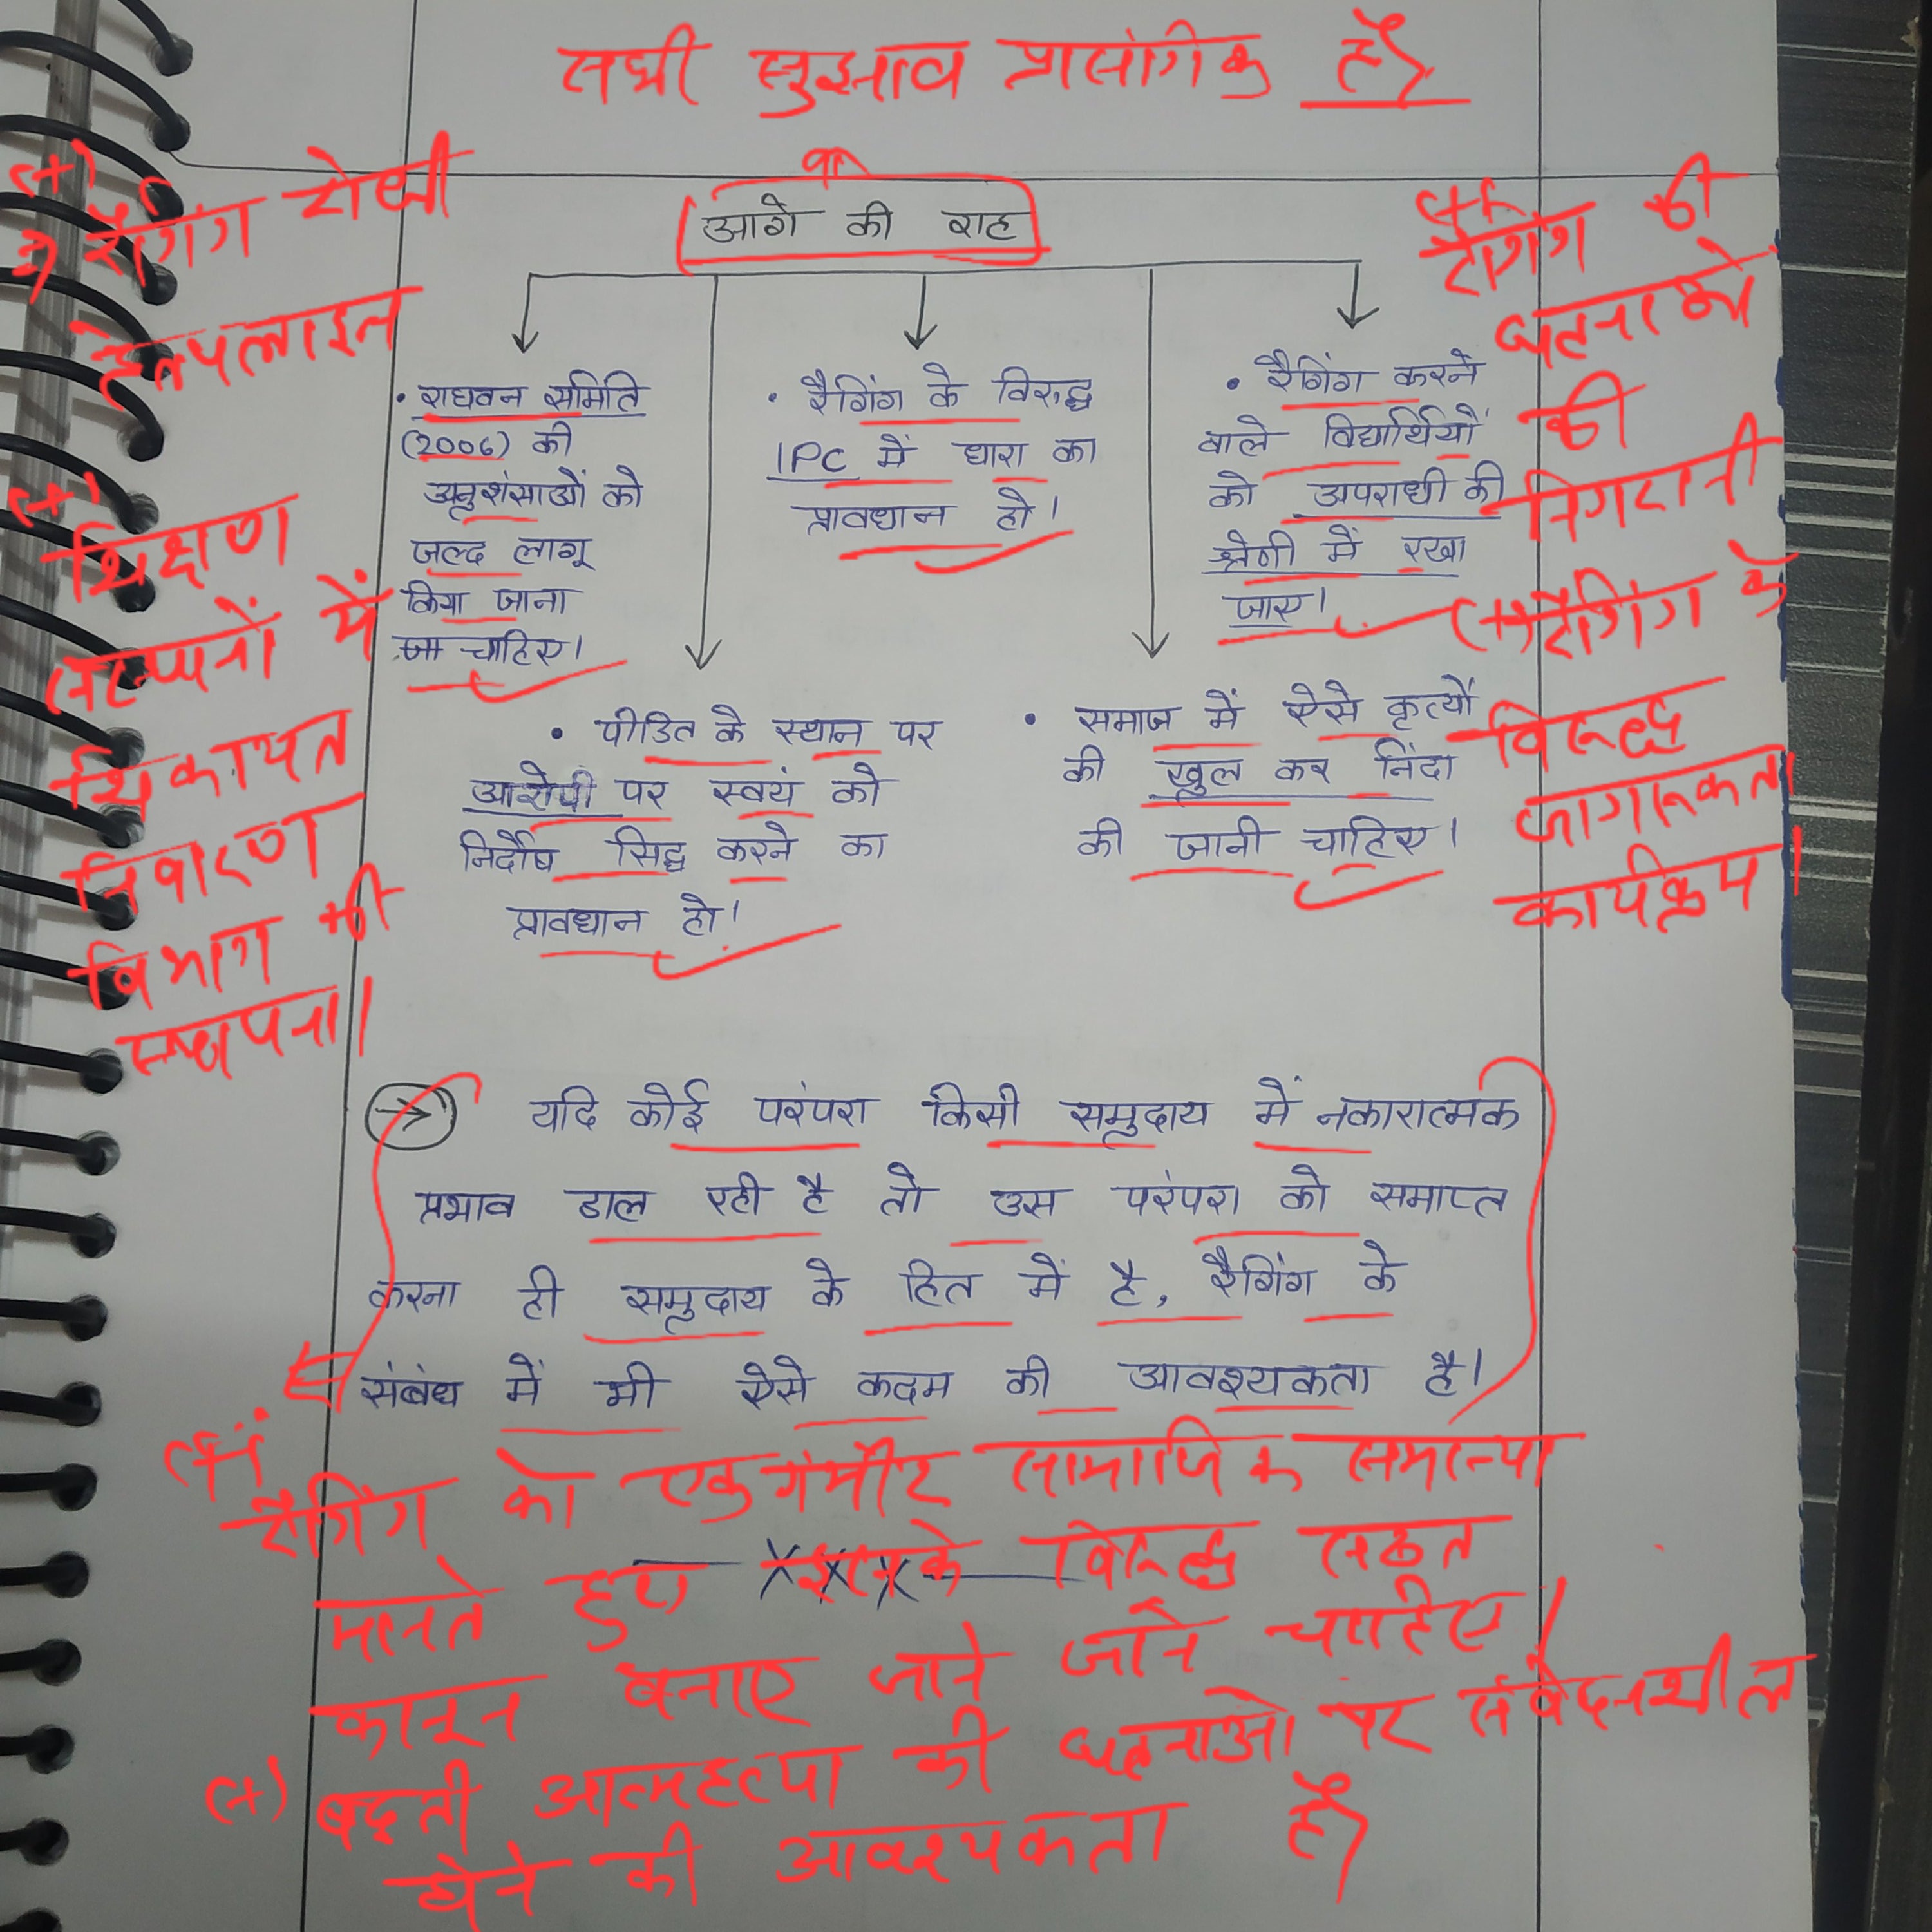 सभी सुझाव प्रासंगिक हैं
आगे की राह
(+)
रैगिंग रोधी
हेल्पलाइन
(+)
शिक्षण
संस्थानों में
शिकायत
निवारण
विभाग की
स्थापना।
• राघवन समिति
(2006) की
अनुशंसाओं को
जल्द लागू
किया जाना
चाहिए।
• रैगिंग के विरुद्ध
IPC में धारा का
प्रावधान हो।
• रैगिंग करने
वाले विद्यार्थियों
को अपराधी की
श्रेणी में रखा
जाए।
• पीडित के स्थान पर
आरोपी पर स्वयं को
निर्दोष सिद्ध करने का
प्रावधान हो।
• समाज में ऐसे कृत्यों
की खुल कर निंदा
की जानी चाहिए।
(+)
रैगिंग की
घटनाओं
की
निगरानी
(+) रैगिंग के
विरुद्ध
जागरूकता
कार्यक्रम।
→ यदि कोई परंपरा किसी समुदाय में नकारात्मक
प्रभाव डाल रही है तो उस परंपरा को समाप्त
करना ही समुदाय के हित में है, रैगिंग के
संबंध में भी ऐसे कदम की आवश्यकता है।
(+)
रैगिंग को एक गंभीर सामाजिक समस्या
मानते हुए इसके विरुद्ध सख्त
कानून बनाए जाने जाने चाहिए।
(+) बढ़ती आत्महत्या की घटनाओं पर संवेदनशील
होने की आवश्यकता है